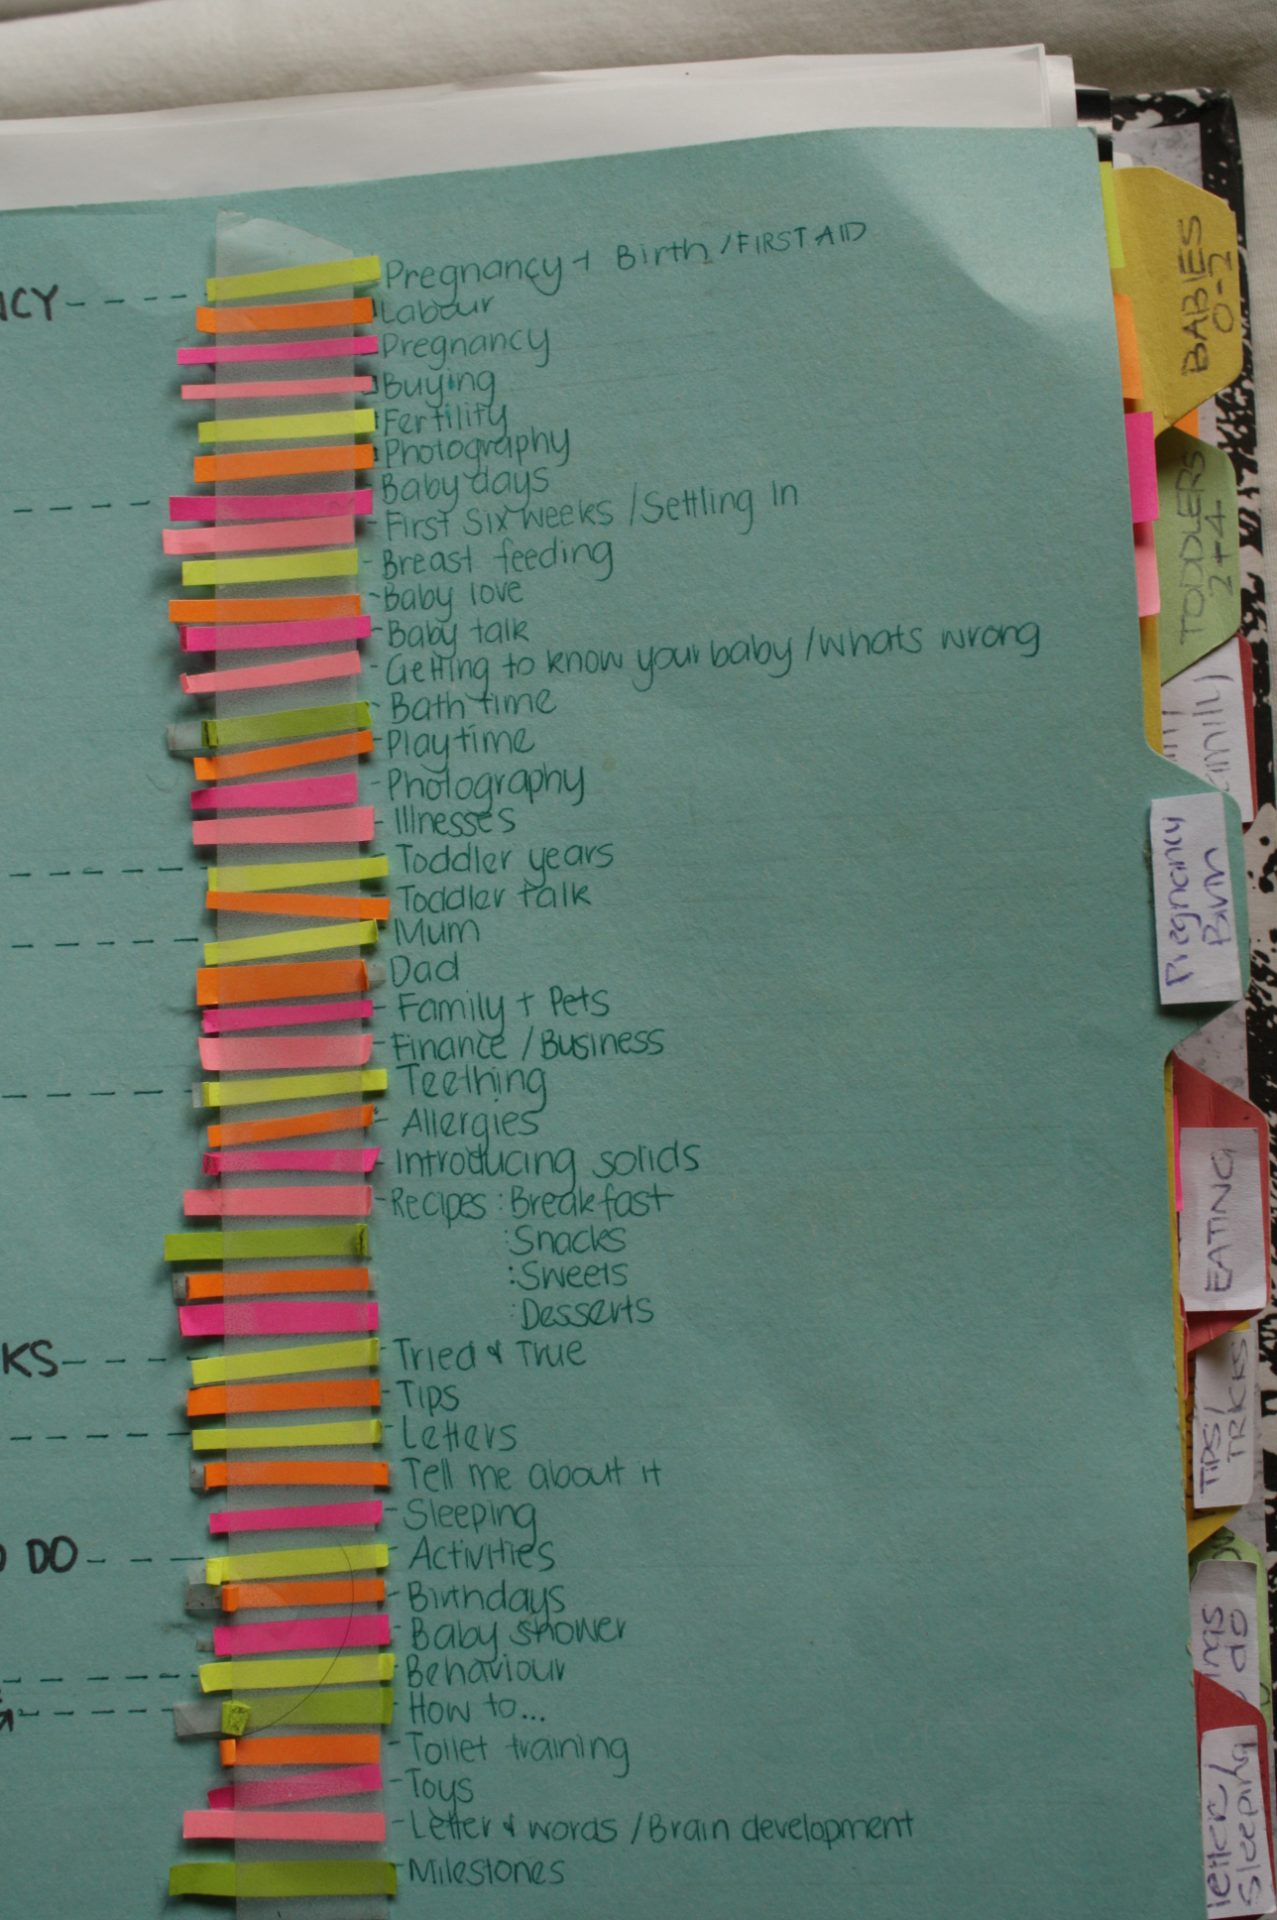 Pregnancy + Birth / FIRST AID
Labour
Pregnancy
Buying
Fertility
Photography
Baby days
First Six weeks / Settling In
Breast feeding
Baby love
Baby talk
Getting to know your baby / Whats wrong
Bath time
Playtime
Photography
Illnesses
Toddler years
Toddler talk
Mum
Dad
Family + Pets
Finance / Business
Teething
Allergies
Introducing solids
Recipes : Breakfast
: Snacks
: Sweets
: Desserts
Tried & True
Tips
Letters
Tell me about it
Sleeping
Activities
Birthdays
Baby shower
Behaviour
How to...
Toilet training
Toys
Letter & words / Brain development
Milestones
NCY
KS
DO
BABIES
0-2
TODDLERS
2+4
Pregnancy
Birth
EATING
TIPS/
TRICKS
do
letter/
Sleeping